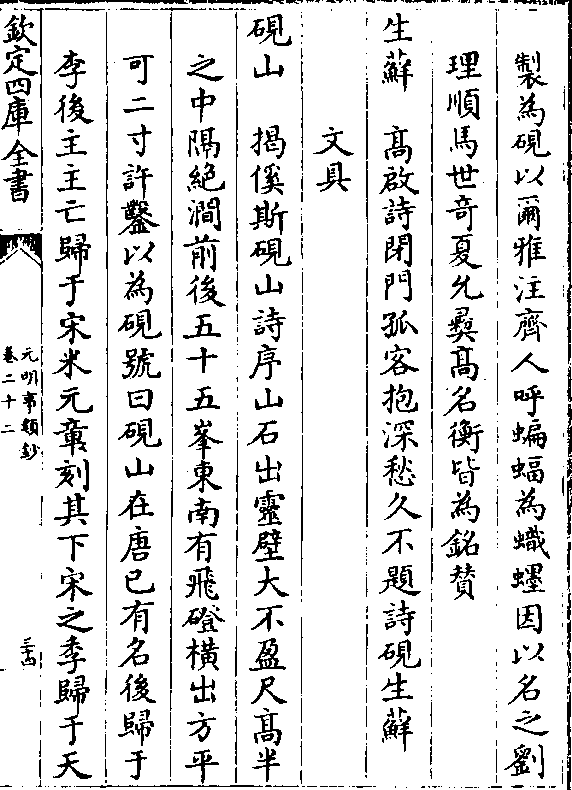 製為硯以爾雅注齊人呼蝙蝠為蟙䘃因以名之劉
理順馬世奇夏允彛高名衡皆為銘贊
生蘚　高啟詩閉門孤客抱深愁久不題詩硯生蘚
文具
硯山　揭傒斯硯山詩序山石出靈壁大不盈尺高半
之中隔絕澗前後五十五峯東南有飛磴橫出方平
可二寸許鑿以為硯號曰硯山在唐已有名後歸于
李後主主亡歸于宋米元章刻其下宋之季歸于天
欽定四庫全書
元明事類鈔
卷二十二
三十四